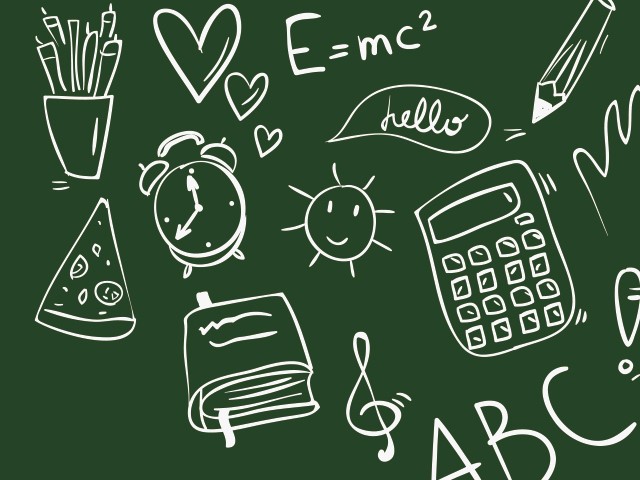 E=mc²
hello
ABC